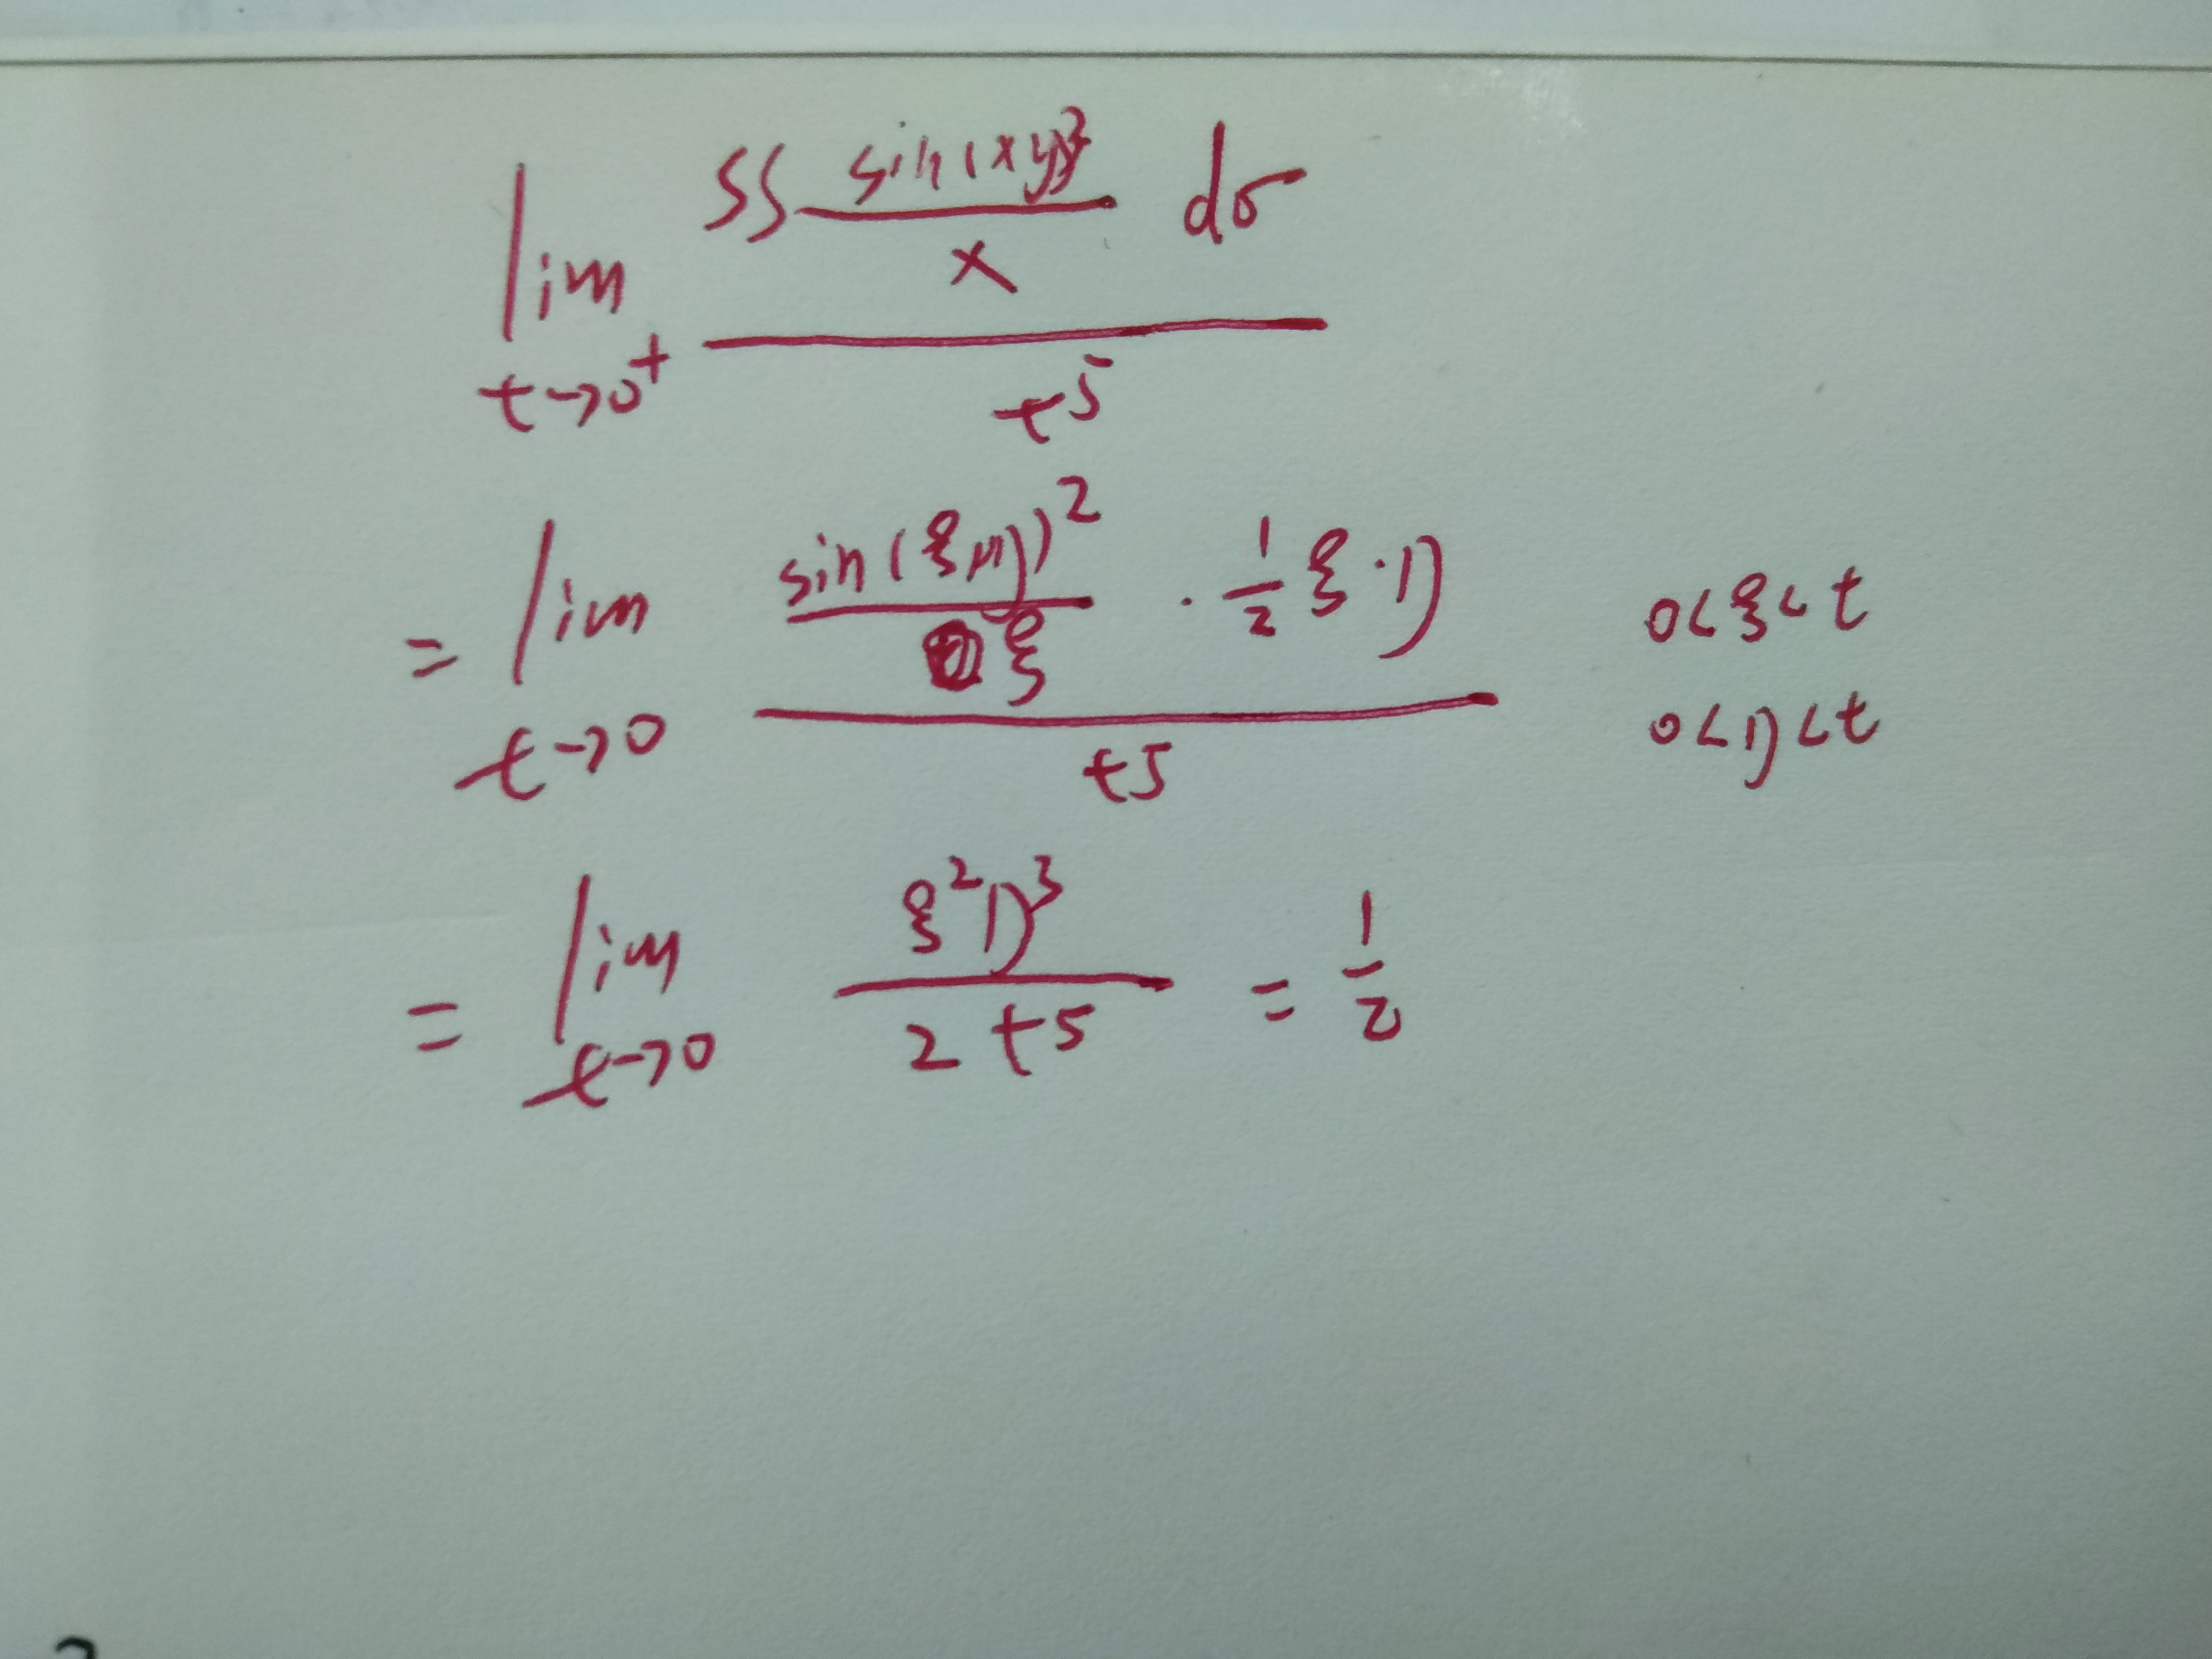 lim t→0⁺ (∬ sin(xy)² / x dσ) / t⁵
= lim t→0 (sin(ξη)² / ξ · 1/2 ξ·η) / t⁵ 0<ξ<t 0<η<t
= lim t→0 ξ²η³ / 2t⁵ = 1/2